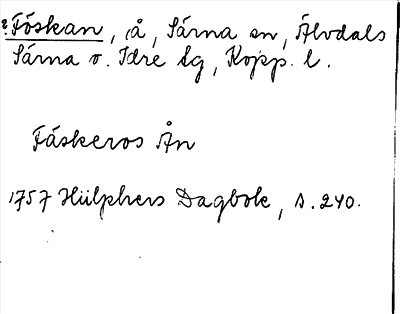 ? Föskan, å, Särna sn, Älvdals
Särna o. Idre tg, Kopp. l.
Fäskeros Ån
1757 Hülphers Dagbok, s. 240.